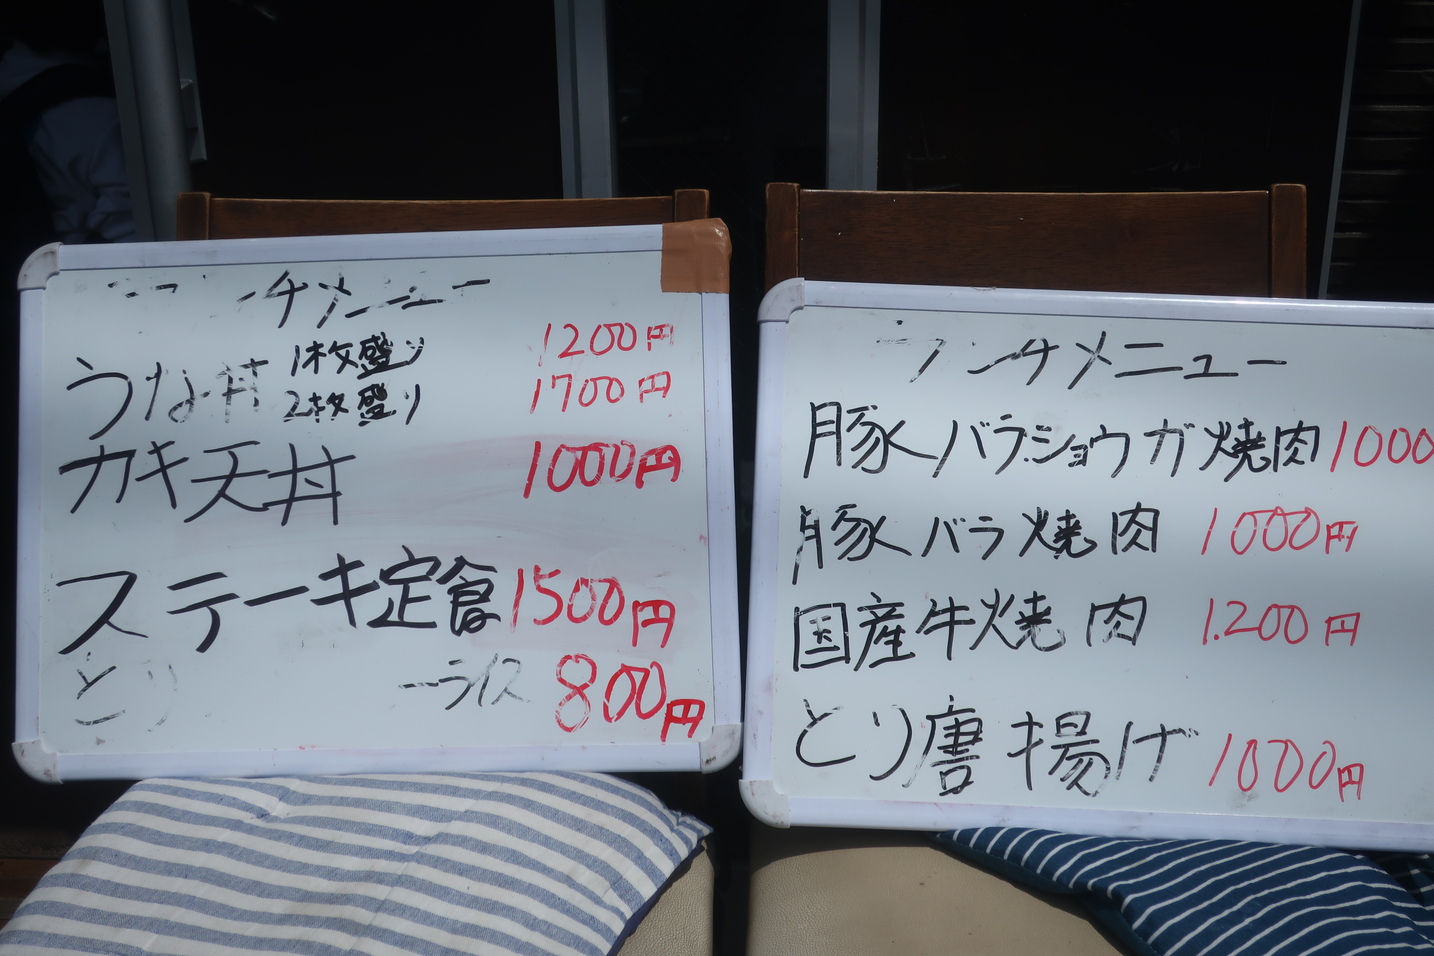 ランチメニュー
うな丼 1枚盛り 1200円
2枚盛り 1700円
カキ天丼 1000円
ステーキ定食 1500円
とり ーライス 800円
ランチメニュー
豚バラショウガ焼肉 1000
豚バラ焼肉 1000円
国産牛焼肉 1.200円
とり唐揚げ 1000円